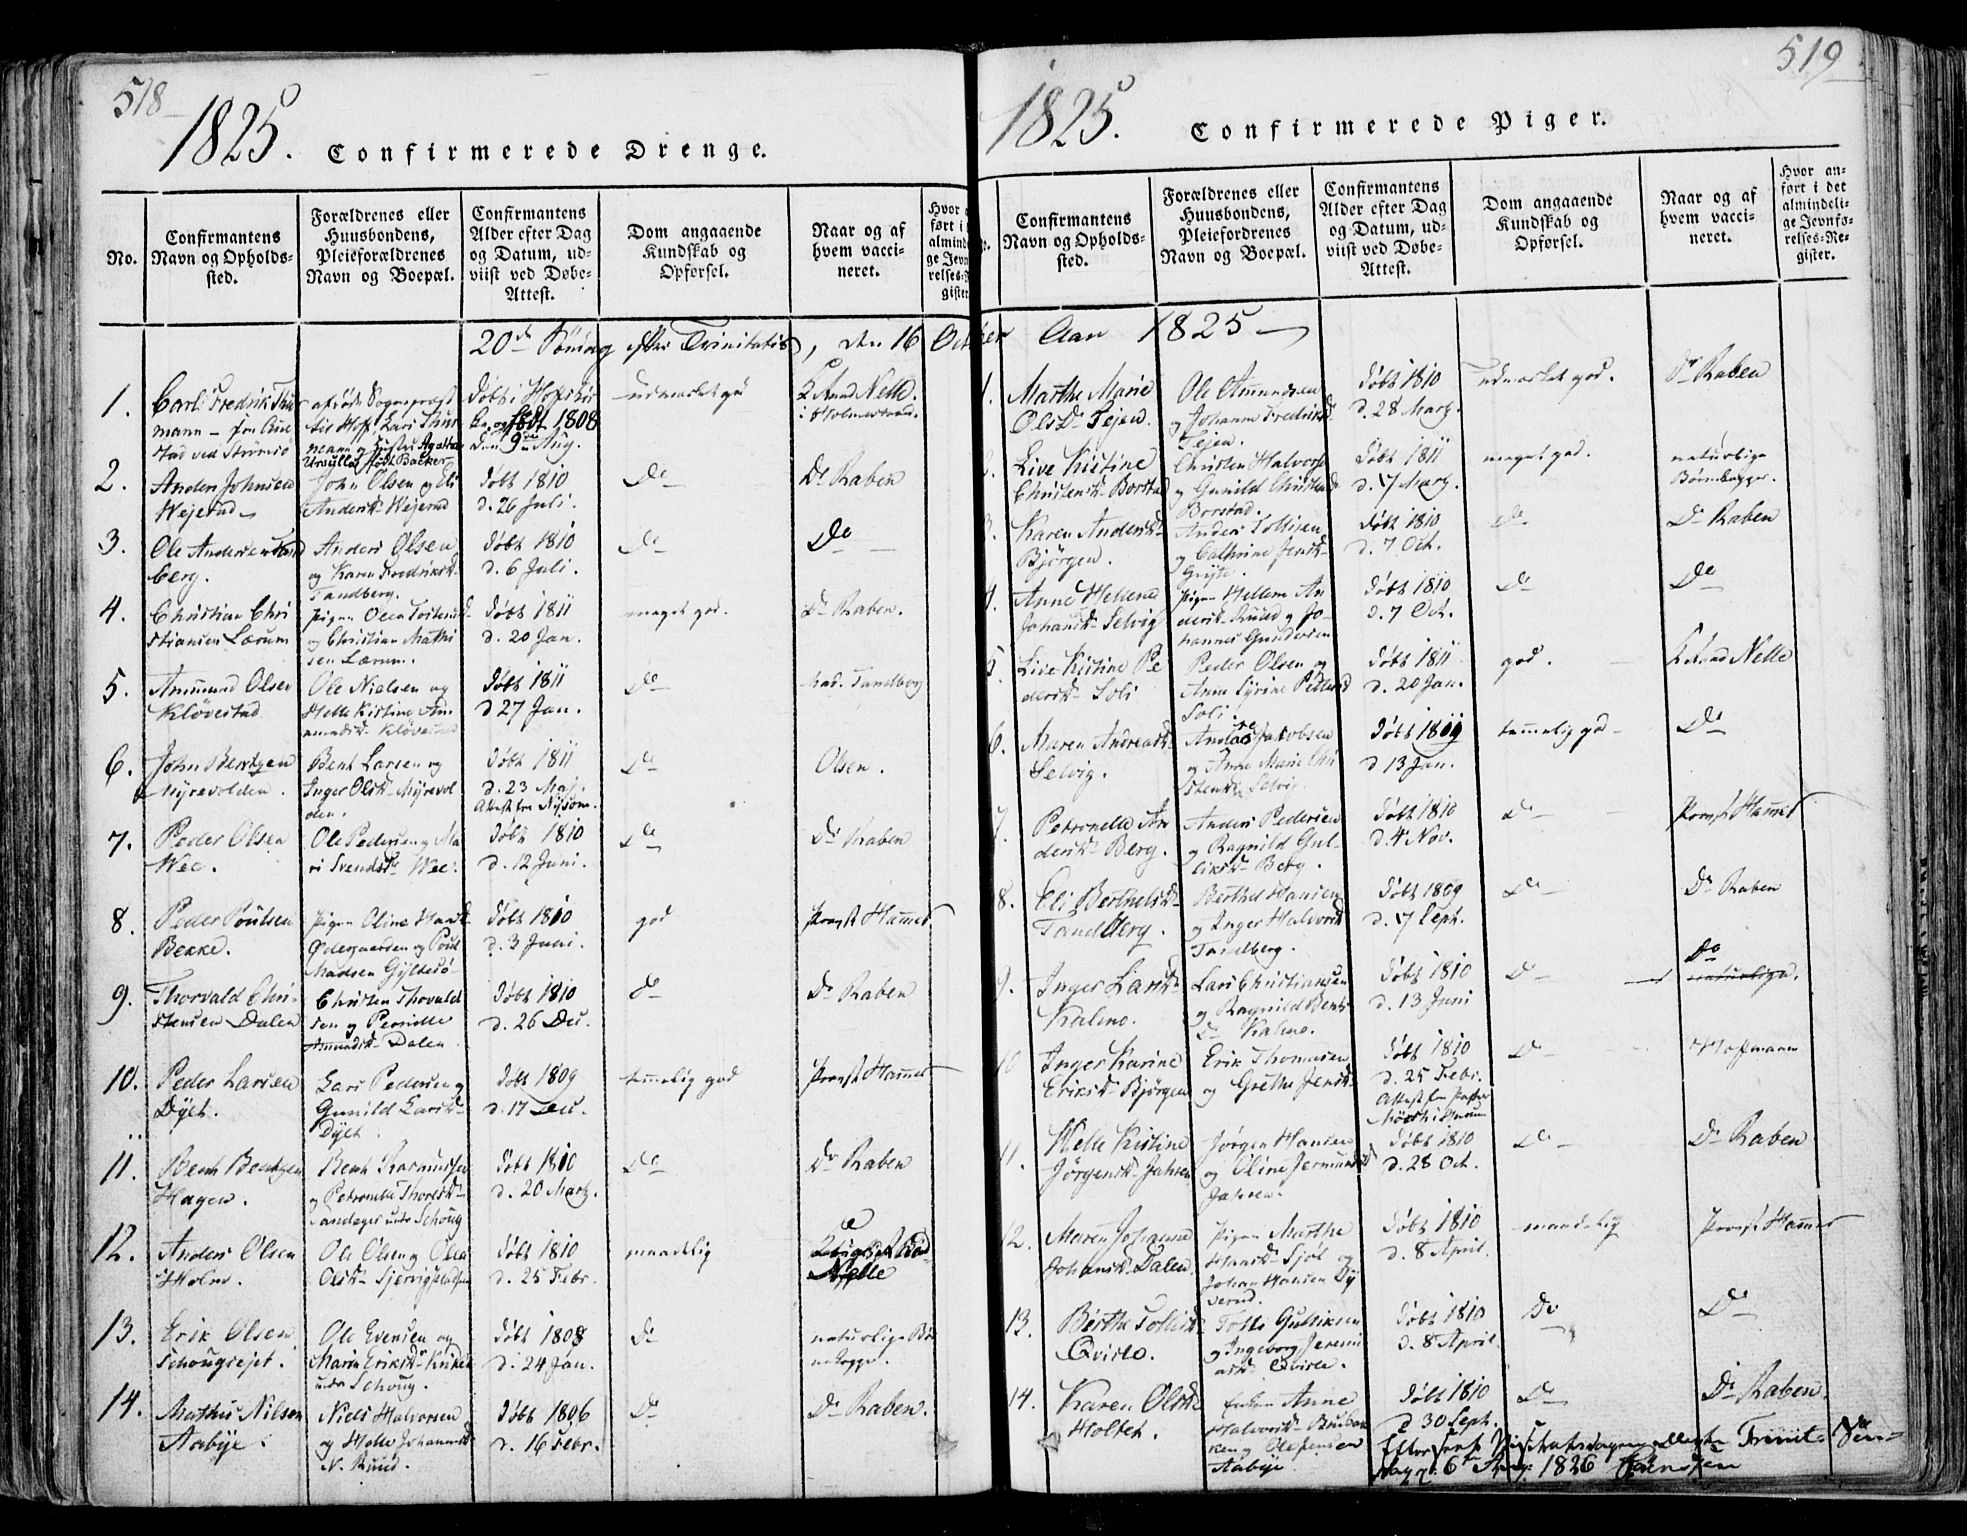 518
1825. Confirmerede Drenge.
No.
Confirmantens Navn og Opholds-sted.
Forældrenes eller Huusbondens, Pleieforældrenes Navn og Boepæl.
Confirmantens Alder efter Dag og Datum, ud-viist ved Døbe-Attest.
Dom angaaende Kundskab og Opførsel.
Naar og af hvem vacci-neret.
20de Søndag efter Trinitatis, den 16 October Aar 1825
1. Carl Fredrik Thu
mann
ved Strømsø
til Hof, Lars Thur
mann og Hustru Agatha
Ursylla født Backer
Døbt i Hofs Kir
ke og født 1808
den 9de Aug.
udmærket god
Nelle.
i Holmestrand.
2. Anders Johnsen
Wejerud
John Olsen og Eli
Andersd. Wejerud
døbt 1810
d. 26 Juli.
Do
Dr Raben
3. Ole Andersen Tand
berg.
Anders Olsen
og Karen Fredriksd.
Tandberg.
døbt 1810
d. 6 Juli.
Do
Do
4. Christian Chri
stiansen Lærum
Pigen Olea Torstensd.
og Christian Mathi
sen Lærum.
døbt 1811
d. 20 Jan.
meget god.
Dr Raben.
5. Ammund Olsen
Kløvestad
Ole Nielsen og
Helle Kistine Am
mundsd. Kløvestad
døbt 1811
d 27 Jan.
Do
Mad. Tandberg
6. John Bentsen
Myrevolden.
Bent Larsen og
Inger Olsd. Myrevol
den.
døbt 1811
d. 23 Maj.
Attest fra
Do
Olsen.
7. Peder Olsen
Wee.
Ole Pedersen og Ma
ri Svendsd. Wee.
døbt 1810
d. 12 Juni.
Do
Dr Raben
8. Peder Poulsen
Bekke.
Pigen Oline Hansd.
Ødegaarden og Poul
Madsen Gyltesø
døbt 1810
d. 3 Juni.
god
Provst Hammer
9. Thorvald Chri-
stensen Dalen
Christen Thorvald
sen og Pernille
Amundsd. Dalen
døbt 1810
d. 26 Dec.
do
Dr Raben
10. Peder Larsen
Dyet.
Lars Pedersen og
Gunild Larsd.
Dyet.
døbt 1809
d. 17 Dec.
temmelig god
Provst Hammer
11. Bent Bentsen
Hagen.
Bent Rasmussen
og Petronelle Thoresd.
under Schoug
døbt 1810
d. 20 Martz.
Do
Dr Raben
12. Anders Olsen
Holm.
Ole Olsen og Olea
Olsd.
døbt 1810
d. 25 Febr.
maadelig
Nelle
13. Erik Olsen
Schougrejet.
Ole Evensen og
Maria Eriksdr
under Schoug.
døbt 1808
d. 24 Jan.
Do
naturlige Bør
nekopper.
14. Mathis Nilsen
Aabye.
Niels Halvorsen
og Helle Johannesd.
N. Ruud.
døbt 1806
d. 16 Febr.
Do
Dr Raben.
519
1825. Confirmerede Piger.
Confirmantens Navn og Opholds-sted.
Forældrenes eller Huusbondens, Pleieforældrenes Navn og Boepæl.
Confirmantens Alder efter Dag og Datum, ud-viist ved Døbe-Attest.
Dom angaaende Kundskab og Opførsel.
Naar og af hvem vacci-neret.
Hvor an-ført i det almindeli-ge Jevnfø-relses-Re-gister.
1. Marthe Marie
Olsdr Tejen.
Ole Amundsen
og Johanne Fredriksd.
Tejen.
døbt 1810
d. 28 Martz.
udmærket god.
Dr Raben
2. Live Kistine
Christensd. Borstad
Christen Halvors
og Gunild Christensd.
Borstad.
døbt 1811
d. 7 Martz.
meget god.
naturlige
Børnekopper.
3. Karen Andersd.
Bjørgen.
Anders Tollefsen
og Cathrine Jensd.
døbt 1810
d. 7 Oct.
Do
Dr Raben
4. Anne Hellene
Johansd. Selvig
Pigen Hellene An
dersd. Ruud og Jo
hannes Gundersen
døbt 1810
d. 7 Oct.
Do
Do
5. Live Kistine Pe
dersd. Soli
Peder Olsen og
Anne Syrine
Soli.
døbt 1811
d. 20 Jan.
god.
Nelle
6. Maren Andreasd.
Selvig.
Andreas Jakobsen
og Anne Marie Chri
stensd. Selvig.
døbt 1809
d 13 Jan.
temmelig god
Do
7. Petronelle An
dersd. Berg.
Anders Pedersen
og Ragnild Gul
liksd. Berg.
døbt 1810
d. 4 Nov.
Do
Provst Hammer
8. Eli Berthelsd.
Tandberg.
Berthel Hansen
og Inger Halvorsd.
Tandberg.
døbt 1809
d. 17 Sept.
Do
Dr Raben
9. Inger Larsd.
Kalmo.
Lars Christiansen
og Ragnild Bents
Dr Kalmo.
døbt 1810
d. 13 Juni
Do
Do
naturlige.
10 Inger Karine
Eriksd. Bjørgen
Erik Thommesen
og Grethe Jensd.
døbt 1810
d. 25 Febr.
Attest fra Pastor
Do
Hoffmann
11. Helle Kistine
Jørgensd. Jahren
Jørgen Hansen
og Oline Jermundsd.
Jahren.
døbt 1810
d. 28 Oct.
Do
Dr Raben
12. Maren Johanne
Johansd. Dalen.
Pigen Marthe
Hansd. Sjøl og
Johan Hansen Dy
verud.
døbt 1810
d. 8 April.
maadelig
Provst Hammer
13. Berthe Tollefsd.
Qvisle.
Tolle Gulliksen
og Ingeborg Jeremi
asd. Qvisle.
døbt 1810
d. 8 April
Do
Do
14. Karen Olsd.
Holtet.
Enken Anne
Halvorsd.
og Ole Jensen
Aabye
døbt 1810
d 30 Sept.
Do
Dr Raben.
Trinit. Søn=
dag d. 6te Aug. 1826